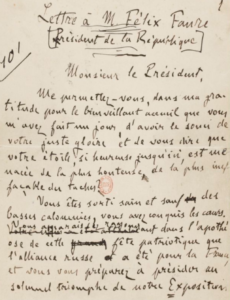 1
Lettre à M. Félix Faure
Président de la République
Monsieur le Président,
Me permettez-vous, dans ma gra-
titude pour le bienveillant accueil que vous
m'avez fait un jour, d'avoir le souci de
votre juste gloire et de vous dire que
votre étoile, si heureuse jusqu'ici, est me-
nacée de la plus honteuse, de la plus inef-
façable des taches?
Vous êtes sorti sain et sauf des
basses calomnies, vous avez conquis les cœurs.
Vous apparaissez rayonnant dans l'apothé-
ose de cette fête patriotique que
l'alliance russe a été pour la France
et vous vous préparez à présider au
solennel triomphe de notre Exposition